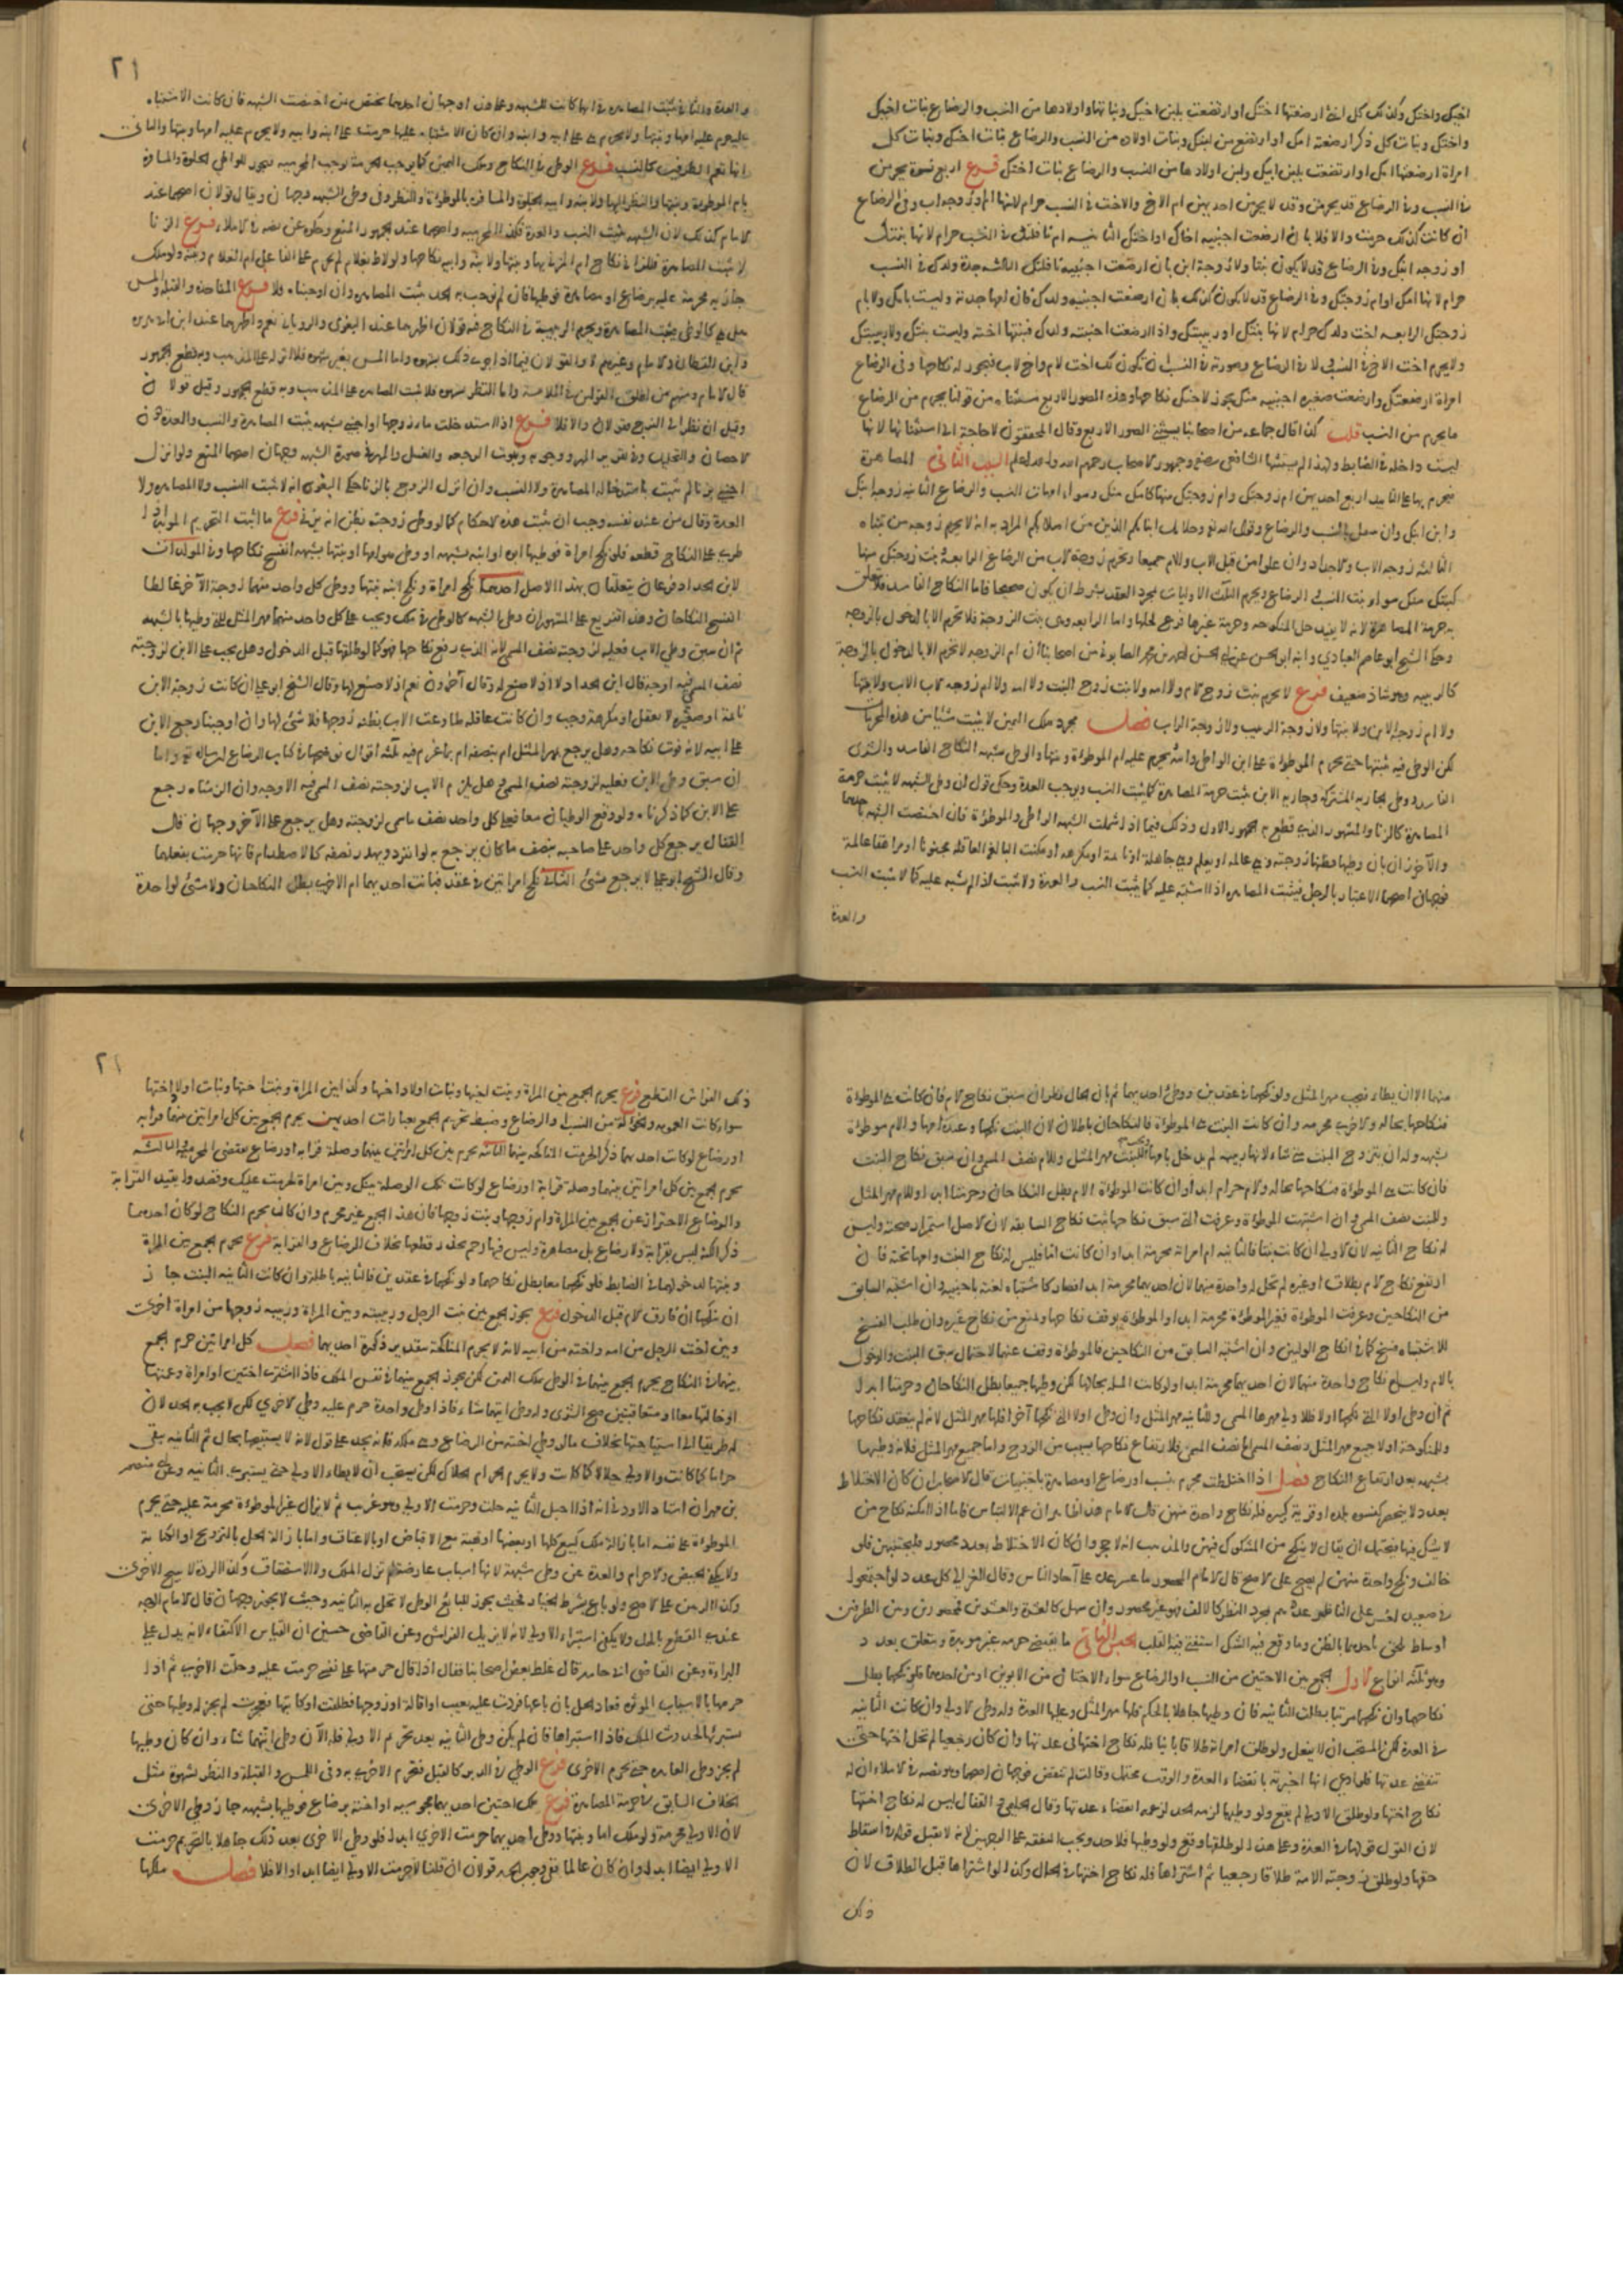 اخيك واختك وكذلك كل انثى ارضعتها اختك او ارتضعت بلبن اخيك وبناتها واولادها من النسب والرضاع بنات اخيك
واختك وبنات كل ذكر ارضعته امك او ارتضع من لبنك وبنات اولاده من النسب والرضاع بنات اخيك وبنات كل
امراة ارضعتها امك او ارتضعت بلبن ابيك ولبن اولادها من النسب والرضاع بنات اختك فرع اربع نسوة يحرمن
في النسب وفي الرضاع قد يحرمن وقد لا يحرمن احديهن ام الاخ والاخت في النسب حرام لانها ام او زوجة اب وفي الرضاع
ان كانت كذلك حرمت والا فلا بان ارضعت اجنبية اخاك او اختك الثانيه ام نافلتك في النسب حرام لانها بنتك
او زوجه ابنك وفي الرضاع قد لا يكون بنتا ولا زوجة ابن بان ارضعت اجنبية نافلتك الثالثه جدة ولدك في النسب
حرام لانها امك او ام زوجتك وفي الرضاع قد لا يكون كذلك بان ارضعت اجنبيه ولدك فان امها جدته وليست بامك ولا بام
زوجتك الرابعه اخت ولدك حرام لانها بنتك او ربيبتك واذا ارضعت اجنبيه ولدك فبنتها اخته وليست بنتك ولا ربيبتك
ولا يحرم اخت الاخ في النسب ولا في الرضاع وصورته في النسب ان تكون لك اخت لام واخ لاب فيجوز له نكاحها وفي الرضاع
امراة ارضعتك وارضعت صغيره اجنبيه منك يجوز لاخيك نكاحها وهذه الصور الاربع مستثناه من قولنا يحرم من الرضاع
ما يحرم من النسب قلت كذا قال جماعه من اصحابنا يستثنى الصور الاربع وقال المحققون لا حاجة الى استثنائها لانها
ليست داخله في الضابط ولهذا لم يستثنها الشافعي رضي وجمهور الاصحاب رحمهم الله والله اعلم السبب الثاني المصاهرة
فيحرم بها على التابيد اربع احديهن ام زوجتك وام زوجتك منها كامك منك وسواء امهات النسب والرضاع الثانيه زوجة ابنك
وابن ابنك وان سفل بالنسب والرضاع وقول الله تع وحلائل ابنائكم الذين من اصلابكم المراد به انه لا يحرم زوجه من تبناه
الثالثه زوجه الاب والاجداد وان علوا من قبل الاب والام جميعا وتحرم زوجة الاب من الرضاع الرابعة بنت زوجتك منها
كبنتك منك سواء بنت النسب والرضاع ويحرم الثلث الاوليات بمجرد العقد بشرط ان يكون صحيحا فاما النكاح الفاسد فلا يتعلق
به حرمة المصاهرة لانه لا يفيد حل المنكوحه وحرمة غيرها فرع لحلها واما الرابعه وهي بنت الزوجة فلا تحرم الا بالدخول بالزوجه
وحكى الشيخ ابو عاصم العبادي وابنه ابو الحسن عن ابي الحسن احمد بن محمد الصابوني من اصحابنا ان ام الزوجه لا تحرم الا بالدخول بالزوجة
كالربيبه وهو شاذ ضعيف فرع لا يحرم بنت زوج الام ولا امه ولا بنت زوج البنت ولا امه ولا ام زوجه الاب ولا بنتها
ولا ام زوجة الابن ولا بنتها ولا زوجة الربيب ولا زوجة الراب فصل مجرد ملك اليمين لا يثبت شيئا من هذه المحرمات
لكن الوطي فيه يثبتها حتى تحرم الموطوأة على ابن الواطي وابيه وتحرم عليه ام الموطوأة وبنتها والوطي بشبهه النكاح الفاسد والشرى
الفاسد ووطي جاريه المشتركة وجاريه الابن يثبت حرمة المصاهرة كما يثبت النسب ويوجب العدة وحكى قول ان وطى الشبهه لا يثبت حرمة
المصاهرة كالزنا والمشهور الذي قطع به الجمهور الاول وذلك فيما اذا شملت الشبهة الواطي والموطوأة فان اختصت الشبهة باحدهما
والآخر زان بان وطيها يظنها زوجته وهي عالمه او يعلم وهي جاهلة او نائمة او مكرهه او مكنت البالغة العاقله مجنونا او مراهقا عالمة
فوجهان اصحهما الاعتبار بالرجل فيثبت المصاهره اذا اشتبه عليه كما يثبت النسب والعدة ولا يثبت اذا لم يشتبه عليه كما لا يثبت النسب
والعدة
٢١
والعدة والثاني يثبت المصاهره في ايهما كانت الشبهه وعلى هذا وجهان احدهما يختص بمن اختصت الشبهه فان كانت الاشتباه
عليه حرم عليه امها وبنتها ولا يحرم هي على ابيه وابنه وان كان الاشتباه عليها حرمت على ابنه وابيه ولا يحرم عليه امها وبنتها والثاني
انها تعم الطرفين كالنسب فرع الوطى في النكاح وملك اليمين كما يوجب الحرمة يوجب المحرميه فيجوز للواطي الخلوة والمسافرة
بام الموطوءة وبنتها والنظر اليها ولابنه وابيه الخلوة والمسافره بالموطوأة والنظر وفي وطى الشبهه وجهان ويقال قولان اصحهما عند
الامام كذلك لان الشبهه يثبت النسب والعدة فكذا المحرميه واصحهما عند الجمهور المنع وحكوه عن نصه في الاملاء فرع الزنا
لا يثبت المصاهرة فللزاني نكاح ام المزني بها وبنتها ولابنه وابيه نكاحها ولو لاط بغلام لم يحرم على الفاعل ام الغلام وبنته ولو ملك
جاريه محرمة عليه برضاع او مصاهرة فوطيها فان لم نوجب به الحد يثبت المصاهره وان اوجبناه فلا فرع المفاخذة والقبلة واللمس
هل هي كالوطى يثبت المصاهرة ويحرم الربيبة في النكاح فيه قولان اظهرهما عند البغوي والروياني نعم واظهرهما عند ابن ابي هريرة
وابن القطان والامام وغيرهم لا والقولان فيما اذا جرى ذلك بشهوه واما المس بغير شهوه فلا اثر له على المذهب وبه قطع الجمهور
قال الامام ومنهم من اطلق القولين في الملامسة واما النظر بشهوه فلا يثبت المصاهره على المذهب وبه قطع الجمهور وقيل قولان
وقيل ان نظر الى الفرج فقولان والا فلا فرع اذا استدخلت ماء زوجها او اجنبي بشبهه يثبت المصاهرة والنسب والعدة دون
الاحصان والتحليل وفي تقرير المهر ووجوبه وثبوت الرجعه والغسل والمهر في صورة الشبهه وجهان اصحهما المنع ولو انزل
اجنبي بزنا لم يثبت باستدخاله المصاهرة ولا النسب وان انزل الزوج بالزنا حكى البغوي انه لا يثبت النسب ولا المصاهره ولا
العدة وقال من عند نفسه وجب ان يثبت هذه الاحكام كما لو وطى زوجته يظن انه يزني فرع ما اثبت التحريم المؤبد اذا
طرى على النكاح قطعه فلو نكح امراة فوطيها ابوه او ابنه بشبهه او وطى هو امها او بنتها بشبهه انفسخ نكاحها وفي المولدات
لابن الحداد فرعان يتعلقان بهذا الاصل احدهما نكح امراة ونكح ابنه بنتها ووطى كل واحد منهما زوجة الآخر غالطا
انفسخ النكاحان وهذا تفريع على المشهور ان وطى الشبهه كالوطى في ملك ويجب على كل واحد منهما مهر المثل للتي وطيها بالشبهه
ثم ان سبق وطى الاب فعليه لزوجته نصف المسمى لانه الذي رفع نكاحها فهو كما لو طلقها قبل الدخول وهل يجب على الابن لزوجته
نصف المسمى فيه اوجه قال ابن الحداد لا اذ لا صنع له وقال آخرون نعم اذ لا صنع لها وقال الشيخ ابو علي ان كانت زوجة الابن
نائمة او صغيره لا تعقل او مكرهة وجب وان كانت عاقله طاوعت الاب بظنه زوجها فلا شئ لها وان اوجبنا رجع الابن
على ابيه لانه فوت نكاحه وهل يرجع بمهر المثل ام بنصفه ام بما غرم فيه ثلثة اقوال نوضحها في كتاب الرضاع ان شاء الله تع واما
ان سبق وطى الابن فعليه لزوجته نصف المسمى وهل يلزم الاب لزوجته نصف المسمى فيه الاوجه وان الزمناه رجع
على الابن كما ذكرناه ولو وقع الوطيان معا فعلى كل واحد نصف ما سمى لزوجته وهل يرجع على الآخر وجهان قال
القفال يرجع كل واحد على صاحبه بنصف ما كان يرجع به لو انفرد ويهدر نصفه كالاصطدام فانها حرمت بفعلهما
وقال الشيخ ابو علي لا يرجع بشئ الثاني نكح امراتين في عقد فبانت احديهما ام الاخرى بطل النكاحان ولا شئ لواحدة
منهما الا ان يطاء فيجب مهر المثل ولو نكحهما في عقدين ووطئ احديهما ثم بان الحال نظر ان سبق نكاح الام فان كانت هي الموطوأة
فنكاحها بحاله والاخرى محرمه وان كانت البنت هي الموطوأة فالنكاحان باطلان لان البنت نكحها وعنده امها والام موطوأة
بشبهه وله ان يتزوج البنت متى شاء لانها ربيبه لم يدخل بامها ويجب للبنت مهر المثل وللام نصف المسمى وان سبق نكاح البنت
فان كانت هي الموطوأة فنكاحها بحاله والام حرام ابدا وان كانت الموطوأة الام بطل النكاحان وحرمتا ابدا وللام مهر المثل
وللبنت نصف المسمى وان اشتبهت الموطوأة وعرفت التي سبق نكاحها ثبت نكاح السابقه لان الاصل استمرار صحته وليس
له نكاح الثانيه لان الاولى ان كانت بنتا فالثانيه ام امراته محرمة ابدا وان كانت اما فليس له نكاح البنت وامها تحته فان
ارتفع نكاح الام بطلاق او غيره لم تحل له واحدة منهما لان احديهما محرمة ابدا فصار كاشتباه اخته باجنبيه وان اشتبه السابق
من النكاحين وعرفت الموطوأة فغير الموطوأة محرمة ابدا والموطوأة يوقف نكاحها ويمنع من نكاح غيره وان طلب الفسخ
للاشتباه فسخ كما في انكاح الوليين وان اشتبه السابق من النكاحين فالموطوأة وقف عنها لاحتمال سبق البنت والدخول
بالام وليس له نكاح واحدة منهما لان احديهما محرمة ابدا ولو كانت المسله بحالها لكن وطيها جميعا بطل النكاحان وحرمتا ابدا
ثم ان وطى اولا التي نكحها اولا فللاولى مهرها المسمى وللثانيه مهر المثل وان وطى اولا التي نكحها آخرا فلها مهر المثل لانه لم ينعقد نكاحها
وللمنكوحة اولا جميع مهر المثل ونصف المسمى اما نصف المسمى فلارتفاع نكاحها بسبب من الزوج واما جميع مهر المثل فلانه وطيها
بشبهه بعد ارتفاع النكاح فصل اذا اختلطت محرم بنسب او رضاع او مصاهرة باجنبيات قال الاصحاب ان كان الاختلاط
بعدد لا ينحصر كنسوه بلده او قرية كبيره فله نكاح واحدة منهن قال الامام هذا ظاهر ان عم الالتباس فاما اذا امكنه نكاح من
لا يشك فيها فيحتمل ان يقال لا ينكح من المشكوك فيهن والمذهب انه لا حجر وان كان الاختلاط بعدد محصور فليجتنبهن فلو
خالف ونكح واحدة منهن لم يصح على الاصح قال الامام المحصور ما عسر عده على آحاد الناس وقال الغزالي كل عدد لو اجتمعوا
في صعيد لعسر على الناظر عدهم بمجرد النظر كالالف فهو غير محصور وان سهل كالعشرة والعشرين فمحصور وبين الطرفين
اوساط تلحق باحدهما بالظن وما وقع فيه الشك استفتى فيه القلب الجنس الثاني ما يقتضي حرمه غير مؤبدة ويتعلق بعدد
وهو ثلثة انواع الاول الجمع بين الاختين من النسب او الرضاع سواء الاختان من الابوين او من احدهما فلو نكحهما بطل
نكاحهما وان نكحهما مرتبا بطلت الثانيه فان وطيها جاهلا بالحكم فلها مهر المثل وعليها العدة وله وطى الاولى وان كانت الثانيه
في العدة لكن المستحب ان لا يفعل ولو طلق امراته طلاقا باينا فله نكاح اختها في عدتها وان كان رجعيا لم تحل اختها حتى
تنقضي عدتها فلو ادعى انها اخبرته بانقضاء العدة والوقت محتمل وقالت لم تنقض فوجهان اصحهما وهو نصه في الاملاء ان له
نكاح اختها ولو طلق الاولى لم يقع ولو وطيها لزمه الحد لزعمه انقضاء عدتها وقال الحليمي والقفال ليس له نكاح اختها
لان القول قولها في العدة وعلى هذا لو طلقها وقع ولو وطيها فلا حد ويجب النفقه على الوجهين لانه لا يقبل قوله في اسقاط
حقها ولو طلق زوجته الامة طلاقا رجعيا ثم اشتراها فله نكاح اختها في الحال وكذا لو اشتراها قبل الطلاق لان
ذلك
٢١
ذلك الفراش انقطع فرع يحرم الجمع بين المراة وبنت اخيها وبنات اولاد اخيها وكذا بين المراة وبنت اختها وبنات اولاد اختها
سواء كانت العمومه والخؤلة من النسب او الرضاع وضبط تحريم الجمع بعبارات احديهن يحرم الجمع بين كل امراتين بينهما قرابه
او رضاع لو كانت احديهما ذكرا لحرمت المناكحه بينهما الثانيه يحرم بين كل امراتين بينهما وصلة قرابه او رضاع يقتضي المحرميه الثالثه
يحرم الجمع بين كل امراتين بينهما وصلة قرابة او رضاع لو كانت تلك الوصلة بينك وبين امراة لحرمت عليك وقصد وا بقيد القرابة
والرضاع الاحتراز عن الجمع بين المراة وام زوجها وبنت زوجها فان هذا الجمع غير محرم وان كان يحرم النكاح لو كان احديهما
ذكرا لكنه ليس بقرابة ولا رضاع بل مصاهرة وليس فيها رحم يحذر قطعها بخلاف الرضاع والقرابة فرع يحرم الجمع بين المراة
وبنتها لدخولهما في الضابط فلو نكحهما معا بطل نكاحهما ولو نكحهما في عقدين فالثانيه باطلة وان كانت الثانيه البنت جاز
ان ينكحها ان فارق الام قبل الدخول فرع يجوز الجمع بين بنت الرجل وربيبته وبين المراة وربيبه زوجها من امراة اخرى
وبين اخت الرجل من امه واخته من ابيه لانه لا يحرم المناكحة بتقدير ذكورة احديهما فصل كل امراتين حرم الجمع
بينهما في النكاح يحرم الجمع بينهما في الوطى بملك اليمين لكن يجوز الجمع بينهما في نفس الملك فاذا اشترى اختين او امراة وعمتها
او خالتها معا او متعاقبتين صح الشرى وله وطى ايتهما شاء فاذا وطى واحدة حرم عليه وطى الاخرى لكن لا يجب به الحد لان
له طريقا الى استباحتها بخلاف ما لو وطى اخته من الرضاع وهي ملكه فانه يحد على قول لانه لا يستبيحها بحال ثم الثانيه يبقى
حراما كما كانت والاولى حلالا كما كانت ولا يحرم الحرام الحلال لكن يستحب ان لا يطاء الاولى حتى يستبرئ الثانيه وعن منصور
بن مهران استاد الاودني انه اذا احبل الثانيه حلت وحرمت الاولى وهو غريب ثم لا يزال غير الموطوأة محرمة عليه حتى يحرم
الموطوأة على نفسه اما بازالة ملك كبيع كلها او بعضها او هبة مع الاقباض او بالاعتاق واما بازالة الحل بالتزويج او الكتابة
ولا يكفي الحيض والاحرام والعدة عن وطى شبهة لانها اسباب عارضة لم تزل الملك ولا الاستحقاق وكذا الردة لا يبيح الاخرى
وكذا الرهن على الاصح ولو باع بشرط الخيار فحيث يجوز للبائع الوطى لا تحل به الثانيه وحيث لا يجوز وجهان قال الامام الوجه
عندي القطع بالحل ولا يكفي استبراء الاولى لانه لا يزيل الفراش وعن القاضي حسين ان القياس الاكتفاء لانه يدل على
البراءة وعن القاضي ابي حامد قال غلط بعض اصحابنا فقال اذا قال حرمتها على نفسي حرمت عليه وحلت الاخرى ثم اذا
حرمها بالاسباب المؤثره فعاد الحل بان باعها فردت عليه بعيب او اقالة او زوجها فطلقت او كاتبها فعجزت لم يجز له وطيها حتى
يستبرئها لحدوث الملك فاذا استبراها فان لم يكن وطى الثانيه بعد تحريم الاولى فله الآن وطى ايتهما شاء وان كان وطيها
لم يجز وطى العايده حتى يحرم الاخرى فرع الوطي في الدبر كالقبل فتحرم الاخرى به وفي اللمس والقبلة والنظر بشهوة مثل
الخلاف السابق في حرمة المصاهرة فرع ملك اختين احديهما مجوسيه او اخته برضاع فوطيها بشبهه جاز وطى الاخرى
لان الاولى محرمة ولو ملك اما وبنتها ووطى احديهما حرمت الاخرى ابدا فلو وطى الاخرى بعد ذلك جاهلا بالتحريم حرمت
الاولى ايضا ابدا وان كان عالما ففي وجوب الحد قولان ان قلنا لا حرمت الاولى ايضا ابدا والا فلا فصل ملكها